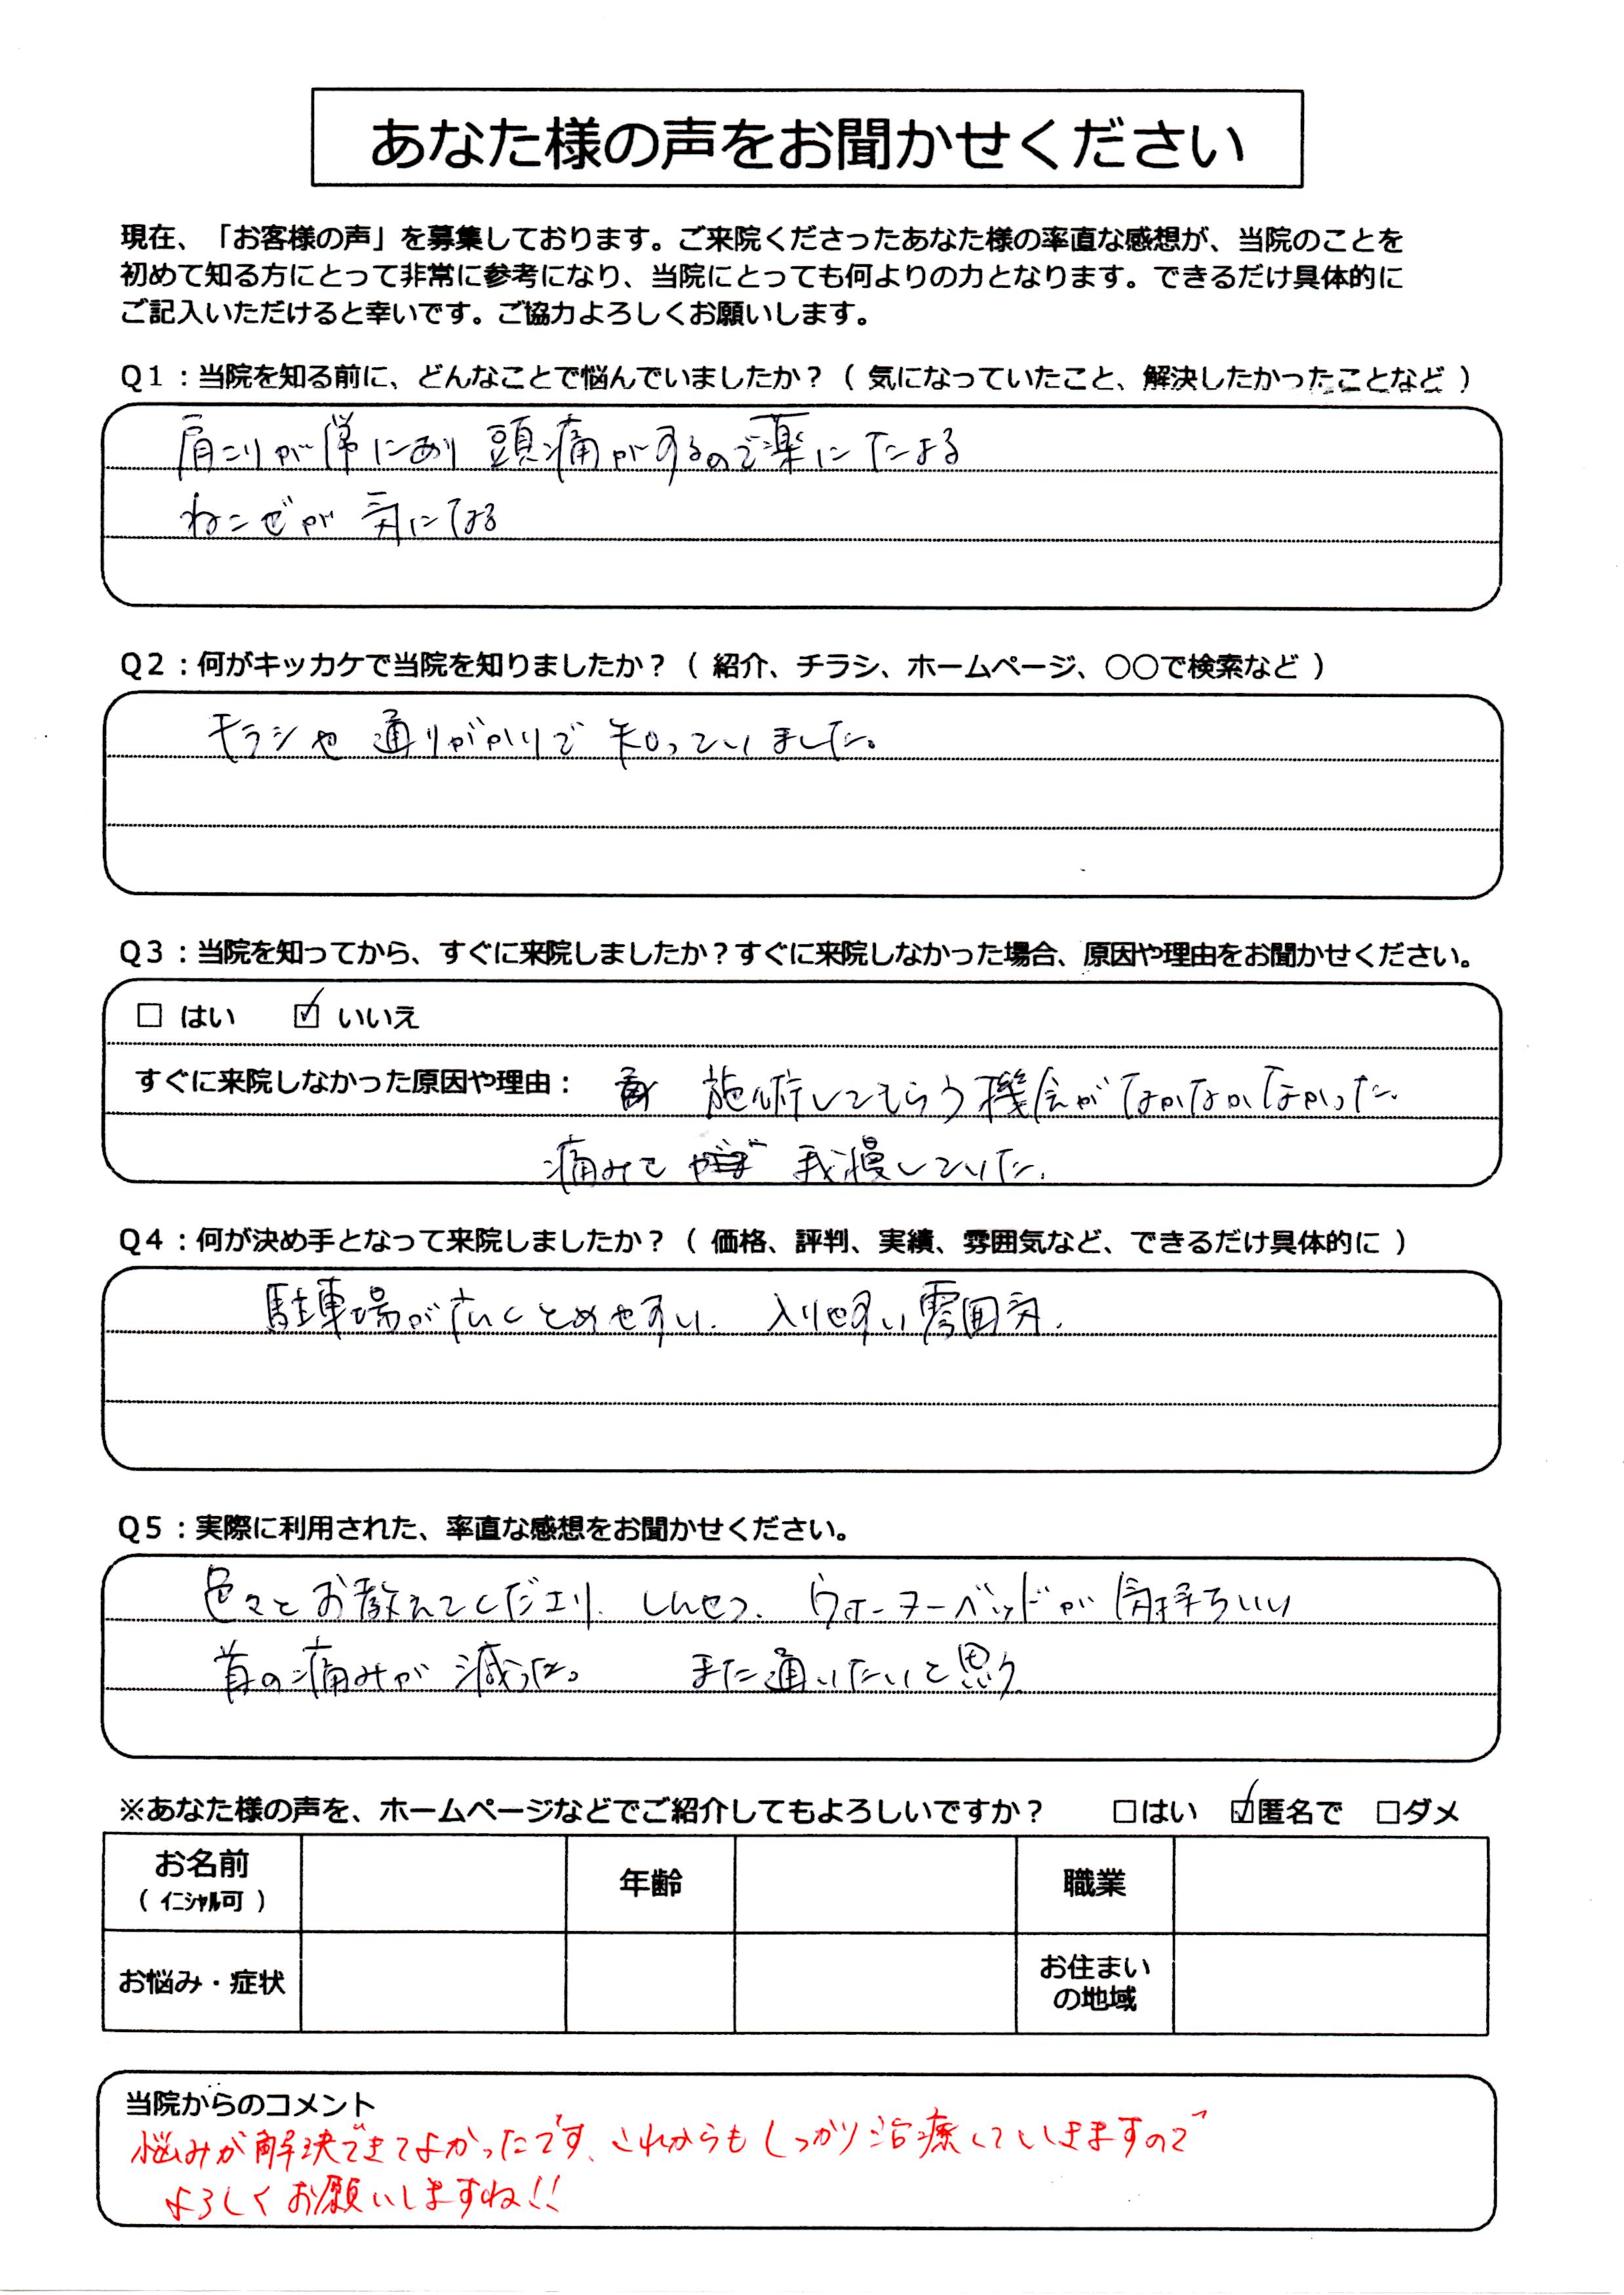 あなた様の声をお聞かせください
現在、「お客様の声」を募集しております。ご来院くださったあなた様の率直な感想が、当院のことを
初めて知る方にとって非常に参考になり、当院にとっても何よりの力となります。できるだけ具体的に
ご記入いただけると幸いです。ご協力よろしくお願いします。
Q1：当院を知る前に、どんなことで悩んでいましたか？（ 気になっていたこと、解決したかったことなど ）
肩こりが常にあり 頭痛がするので薬にたよる
ねこぜが 気になる
Q2：何がキッカケで当院を知りましたか？（ 紹介、チラシ、ホームページ、○○で検索など ）
チラシや 通りがかりで 知っていました。
Q3：当院を知ってから、すぐに来院しましたか？すぐに来院しなかった場合、原因や理由をお聞かせください。
□ はい ☑ いいえ
すぐに来院しなかった原因や理由： 施術してもらう機会がなかなかなかった.
痛みを 我慢していた.
Q4：何が決め手となって来院しましたか？（ 価格、評判、実績、雰囲気など、できるだけ具体的に ）
駐車場が広くとめやすい. 入りやすい雰囲気.
Q5：実際に利用された、率直な感想をお聞かせください。
色々とお教えてくださり. しんせつ. ウォーターベッドが気持ちいい
首の痛みが 減った。 また通いたいと思う
※あなた様の声を、ホームページなどでご紹介してもよろしいですか？ □はい ☑匿名で □ダメ
お名前 年齢 職業
（ ｲﾆｼｬﾙ可 ）
お悩み・症状 お住まい
の地域
当院からのコメント
悩みが解決できてよかったです、これからもしっかり治療していきますので
よろしくお願いしますね!!